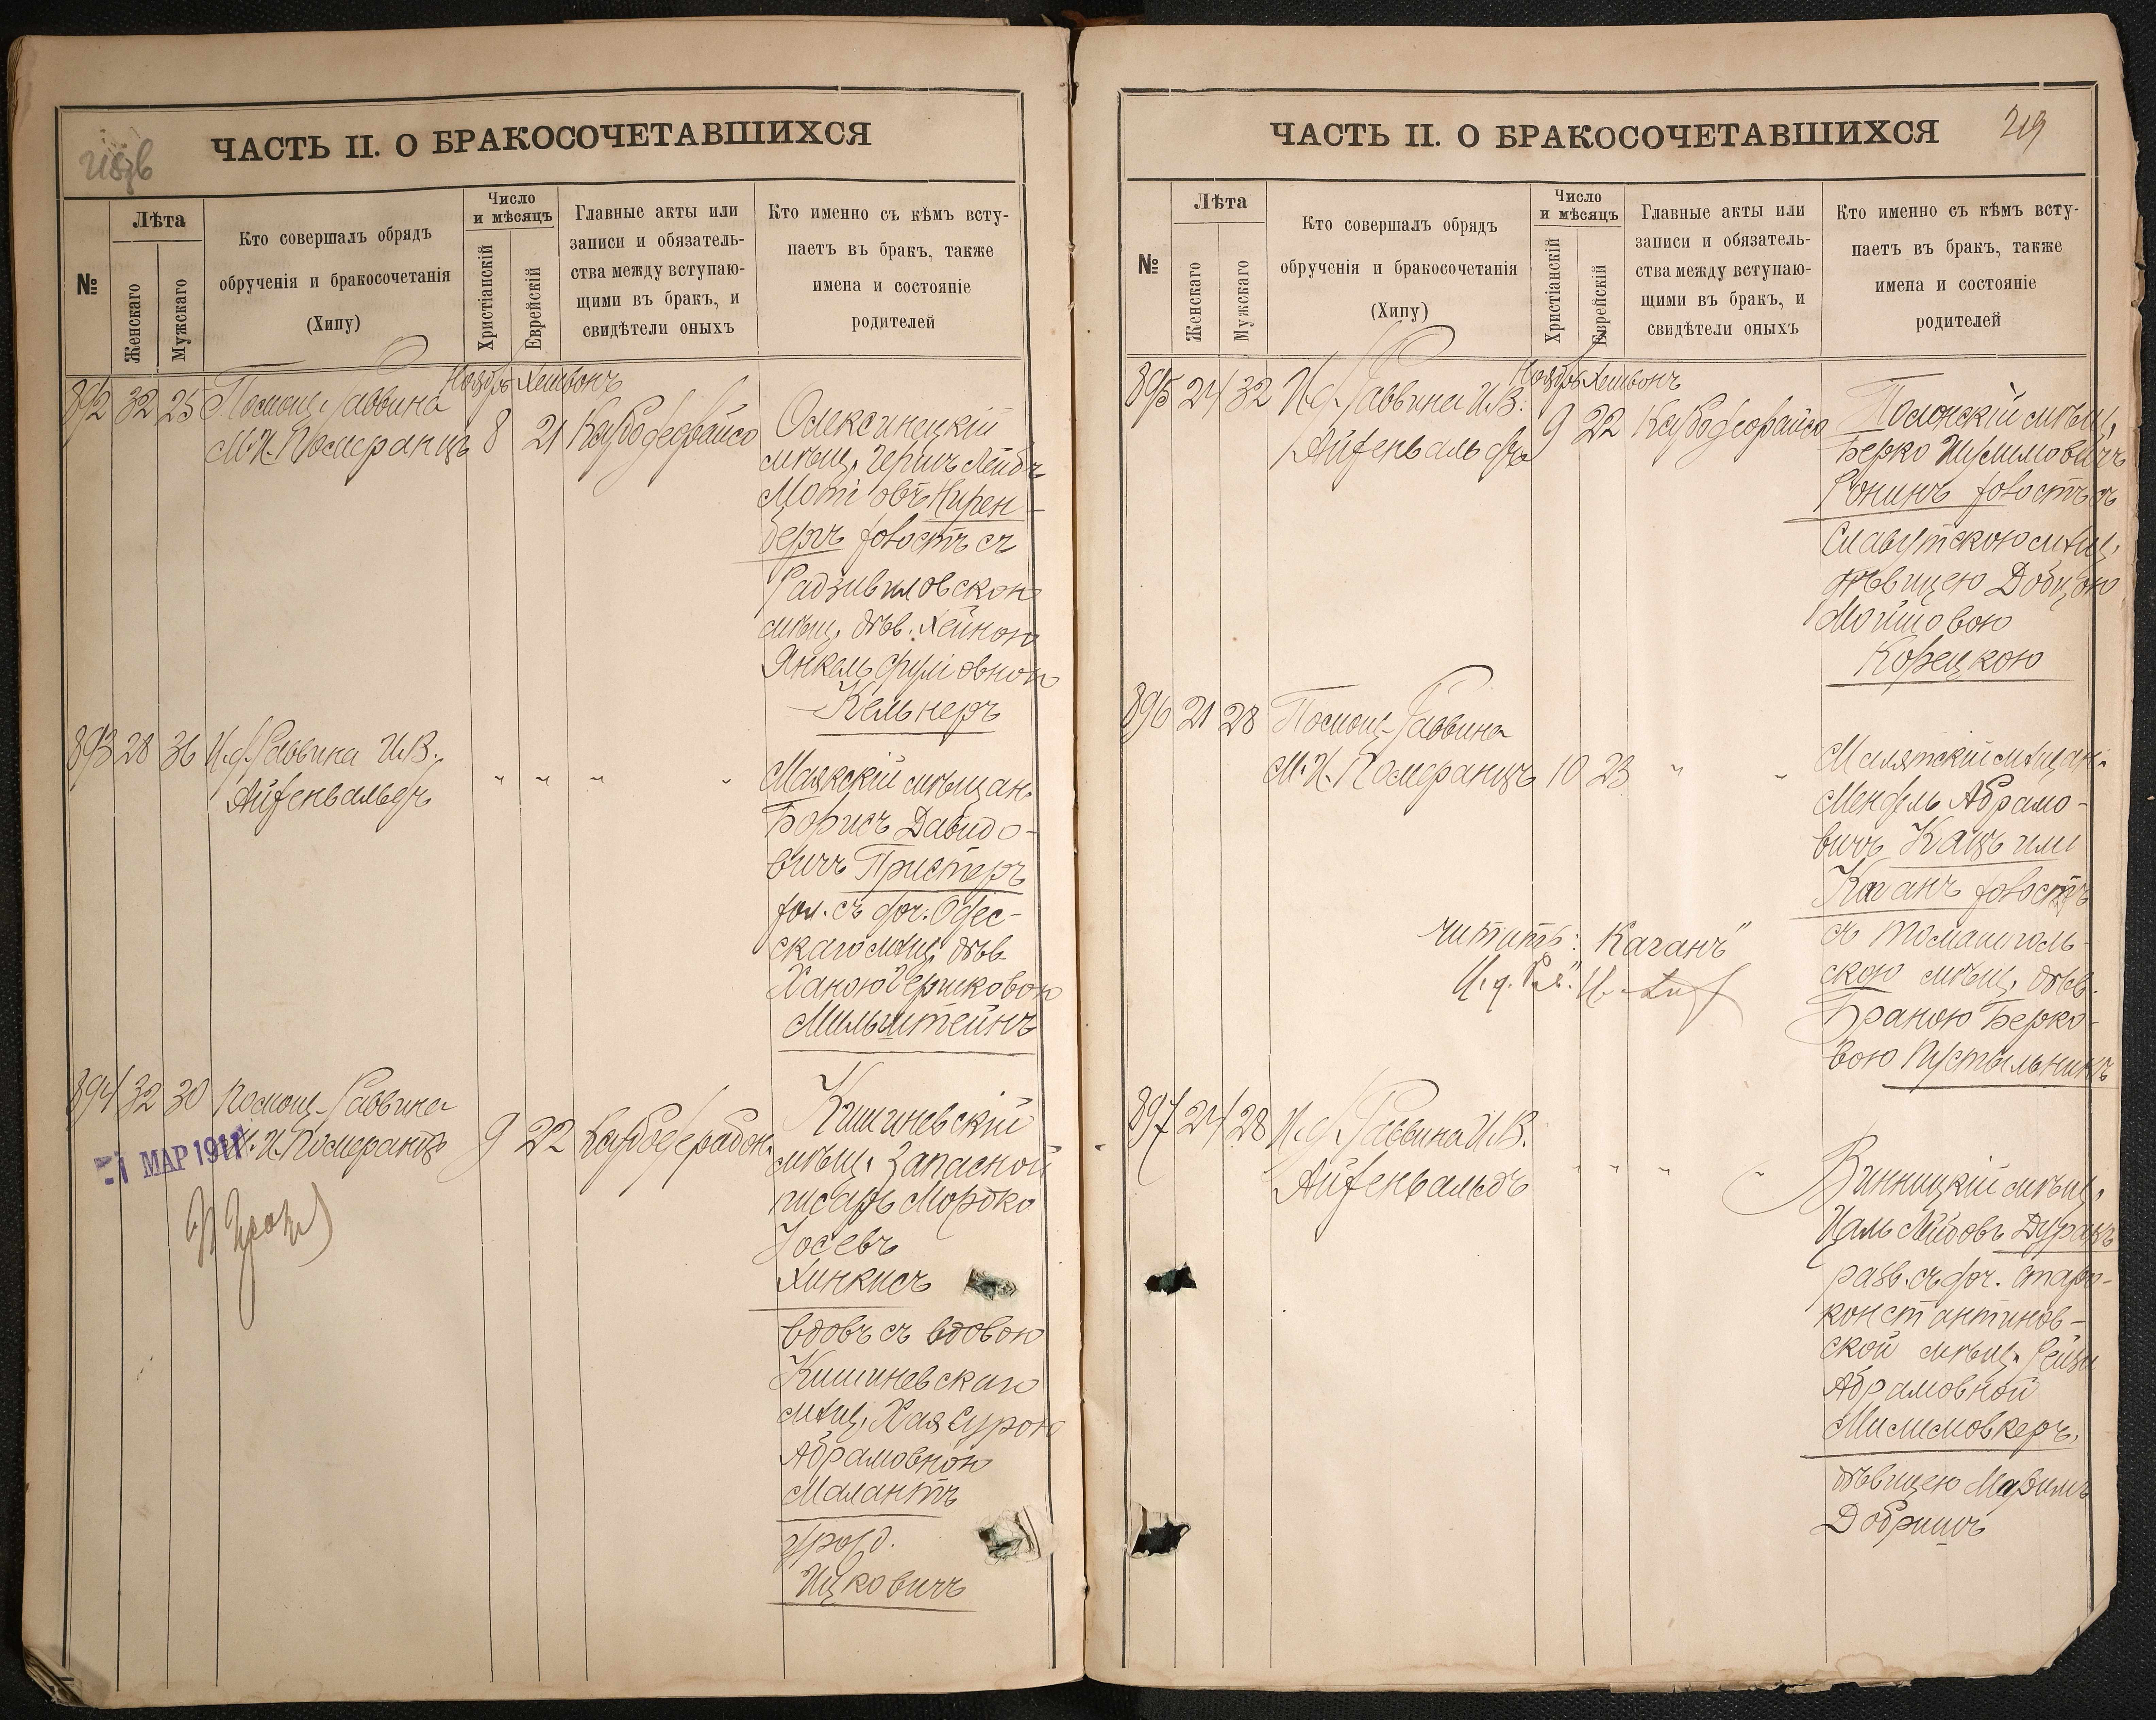 ЧАСТЬ II. О БРАКОСОЧЕТАВШИХСЯ
№
Лѣта
Женскаго
Мужскаго
Кто совершалъ обрядъ
обрученія и бракосочетанія
(Хипу)
Число
и мѣсяцъ
Христіанскій
Еврейскій
Главные акты или
записи и обязатель-
ства между вступаю-
щими въ бракъ, и
свидѣтели оныхъ
Кто именно съ кѣмъ всту-
паетъ въ бракъ, также
имена и состояніе
родителей
892 32 25 Помощ. Раввина
М. И. Померанцъ
Ноябрь Хешвонъ
8 21
Олексинецкій
мѣщ. Гершъ Лейбъ
Нирен-
бергъ холостъ съ
Радзивиловскою
мѣщ. дѣв. Хейною
Кельнеръ
893 28 36 И.д. Раввина И.В.
Айзенвальдъ
" " " "
Маякскій мѣщан.
Борисъ Давидо-
вичъ Пристеръ
хол. съ доч. Одес-
скаго мѣщ. дѣв.
Ханою Гершковою
Мильштейнъ
894 32 30 Помощ. Раввина
М. И. Померанцъ
1 МАР 1911
9 22
Кишиневскій
мѣщ. Запасной
писарь Мордко
Іосевъ
Хинкисъ
вдовъ съ вдовою
Кишиневскаго
мѣщ. Хая Сурою
Абрамовною
Малантъ
урожд.
Ицковичъ
ЧАСТЬ II. О БРАКОСОЧЕТАВШИХСЯ
219
№
Лѣта
Женскаго
Мужскаго
Кто совершалъ обрядъ
обрученія и бракосочетанія
(Хипу)
Число
и мѣсяцъ
Христіанскій
Еврейскій
Главные акты или
записи и обязатель-
ства между вступаю-
щими въ бракъ, и
свидѣтели оныхъ
Кто именно съ кѣмъ всту-
паетъ въ бракъ, также
имена и состояніе
родителей
895 24 32 И.д. Раввина И.В.
Айзенвальдъ
Ноябрь Хешвонъ
9 22
Полонскій мѣщ.
Берко Шулимовичъ
Ронинъ холостъ съ
Славутскою мѣщ.
дѣвицею Добцою
Мошковою
Корецкою
896 21 28 Помощ. Раввина
М. И. Померанцъ 10 23 " "
Малятскій мѣщан.
Мендель Абрамо-
вичъ Кацъ или
Каганъ холостъ
съ Томашполь-
скою мѣщ. дѣв.
Браною Берко-
вою Пустыльникъ
читать: "Каганъ"
И.д. Рав.
897 24 28 И.д. Раввина И.В.
Айзенвальдъ
" " " "
Винницкій мѣщ.
Цаль Лейбовъ Дуракъ
разв. съ доч. Старо-
константинов-
ской мѣщ. Рейзи
Абрамовной
Милимовкеръ,
дѣвицею
Добришъ